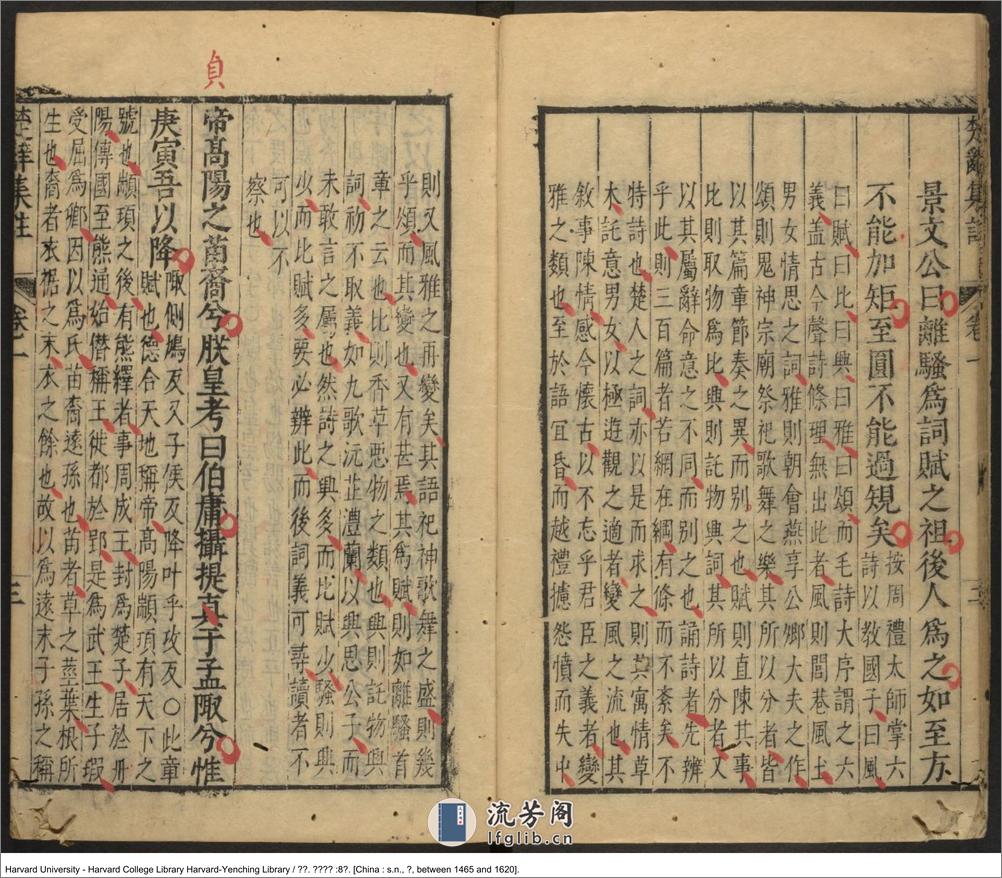 楚辭集註
卷一
二
景文公曰離騷爲詞賦之祖後人爲之如至方
不能加矩至圓不能過規矣
按周禮太師掌六
詩以教國子曰風
曰賦曰比曰興曰雅曰頌而毛詩大序謂之六
義盖古今聲詩條理無出此者風則閭巷風土
男女情思之詞雅則朝會燕享公卿大夫之作
頌則鬼神宗廟祭祀歌舞之樂其所以分者皆
以其篇章節奏之異而別之也賦則直陳其事
比則取物爲比興則託物興詞其所以分者又
以其屬辭命意之不同而別之也誦詩者先辨
乎此則三百篇者若網在綱有條而不紊矣不
特詩也楚人之詞亦以是而求之則其寓情草
木託意男女以極遊觀之適者變風之流也其
敘事陳情感今懷古以不忘乎君臣之義者變
雅之類也至於語冥昏而越禮攄怨憤而失中
則又風雅之再變矣其語祀神歌舞之盛則幾
乎頌而其變也又有甚焉其爲賦則如離騷首
章之云也比則香草惡物之類也興則託物興
詞初不取義如九歌沅芷澧蘭以興思公子而
未敢言之屬也然詩之興多而比賦少騷則興
少而比賦多要必辨此而後詞義可尋讀者不
可以不
察也
貞
帝高陽之苗裔兮朕皇考曰伯庸攝提真于孟陬兮惟
庚寅吾以降
陬側鳩反又子侯反降叶乎攻反○此章
賦也德合天地稱帝高陽顓頊有天下之
號也顓頊之後有熊繹者事周成王封爲楚子居於丹
陽傳國至熊通始僭稱王徙都於郢是爲武王生子瑕
受屈爲卿因以爲氏苗裔遠孫也苗者草之莖葉根所
生也裔者衣裾之末衣之餘也故以爲遠末子孫之稱
楚辭集註
卷一
三
流芳阁
lfglib.cn
Harvard University - Harvard College Library Harvard-Yenching Library / ??. ???? :8?. [China : s.n., ?, between 1465 and 1620].